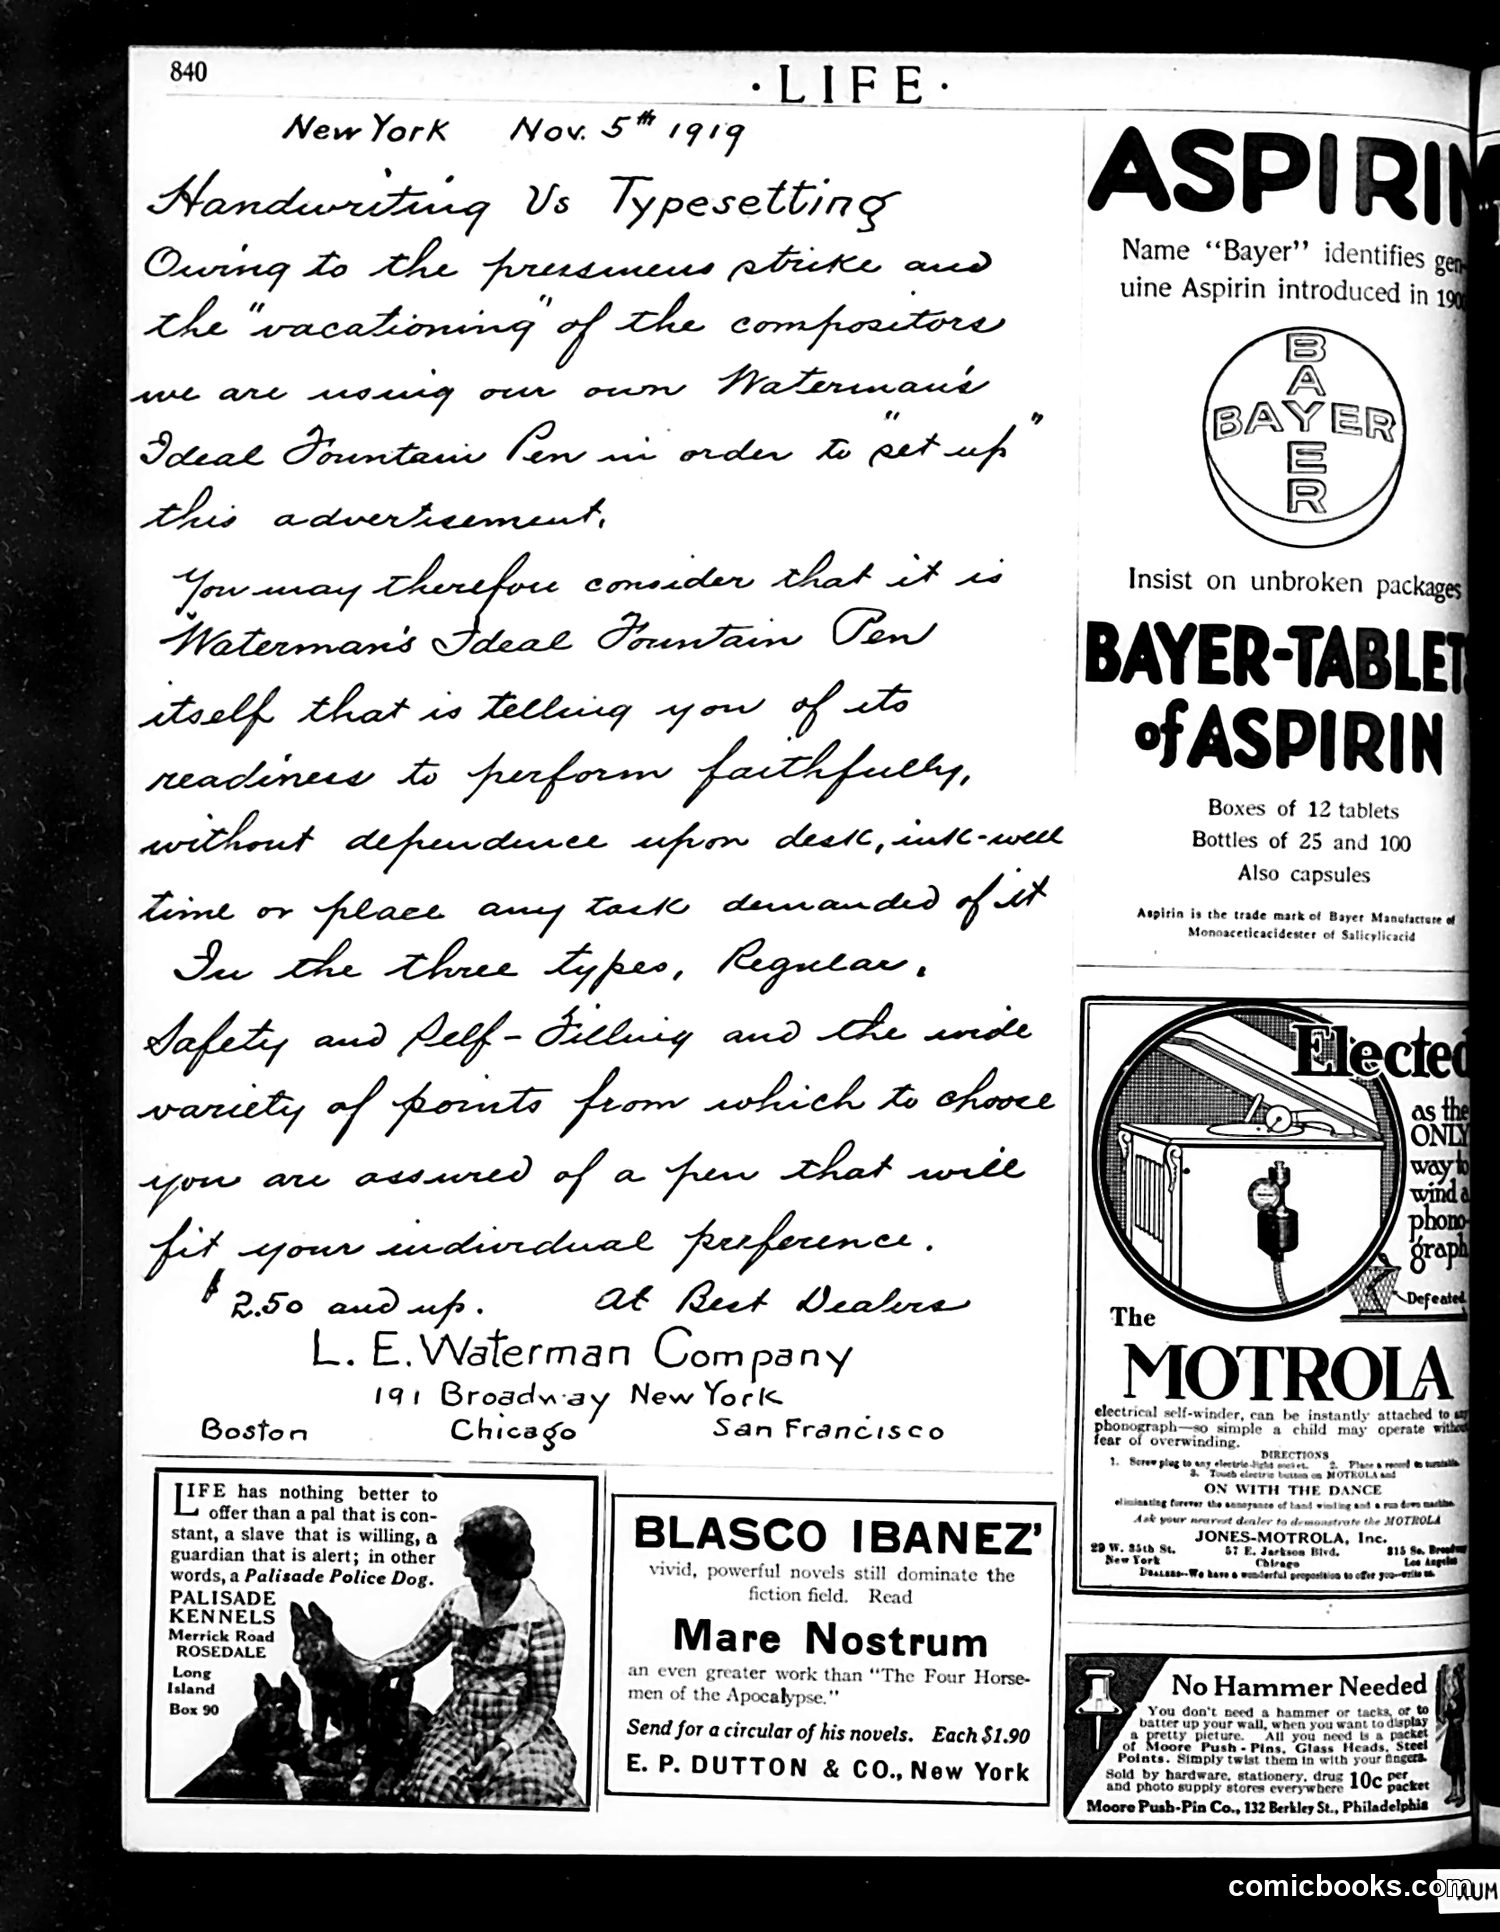 840
· LIFE ·
New York Nov. 5th 1919
Handwriting Vs Typesetting
Owing to the pressmens strike and
the "vacationing" of the compositors
we are using our own Waterman's
Ideal Fountain Pen in order to "set up"
this advertisement.
You may therefore consider that it is
Waterman's Ideal Fountain Pen
itself that is telling you of its
readiness to perform faithfully,
without dependence upon desk, ink-well
time or place any task demanded of it
In the three types, Regular,
Safety and Self-Filling and the wide
variety of points from which to choose
you are assured of a pen that will
fit your individual preference.
$2.50 and up. At Best Dealers
L. E. Waterman Company
191 Broadway New York
Boston Chicago San Francisco
LIFE has nothing better to
offer than a pal that is con-
stant, a slave that is willing, a
guardian that is alert; in other
words, a Palisade Police Dog.
PALISADE
KENNELS
Merrick Road
ROSEDALE
Long
Island
Box 90
BLASCO IBANEZ'
vivid, powerful novels still dominate the
fiction field. Read
Mare Nostrum
an even greater work than "The Four Horse-
men of the Apocalypse."
Send for a circular of his novels. Each $1.90
E. P. DUTTON & CO., New York
ASPIRIN
Name "Bayer" identifies gen-
uine Aspirin introduced in 1900
BAYER
BAYER
Insist on unbroken packages
BAYER-TABLETS
of ASPIRIN
Boxes of 12 tablets
Bottles of 25 and 100
Also capsules
Aspirin is the trade mark of Bayer Manufacture of
Monoaceticacidester of Salicylicacid
Elected
as the
ONLY
way to
wind a
phono-
graph
Defeated
The
MOTROLA
electrical self-winder, can be instantly attached to any
phonograph—so simple a child may operate without
fear of overwinding.
DIRECTIONS
1. Screw plug to any electric-light socket. 2. Place a record on turntable.
3. Touch electric button on MOTROLA and
ON WITH THE DANCE
eliminating forever the annoyance of hand winding and a run down machine.
Ask your nearest dealer to demonstrate the MOTROLA
JONES-MOTROLA, Inc.
29 W. 35th St. 57 E. Jackson Blvd. 315 So. Broadway
New York Chicago Los Angeles
DEALERS--We have a wonderful proposition to offer you--write us.
No Hammer Needed
You don't need a hammer or tacks, or to
batter up your wall, when you want to display
a pretty picture. All you need is a packet
of Moore Push-Pins, Glass Heads, Steel
Points. Simply twist them in with your fingers.
Sold by hardware, stationery, drug
and photo supply stores everywhere 10c per packet
Moore Push-Pin Co., 132 Berkley St., Philadelphia
comicbooks.com